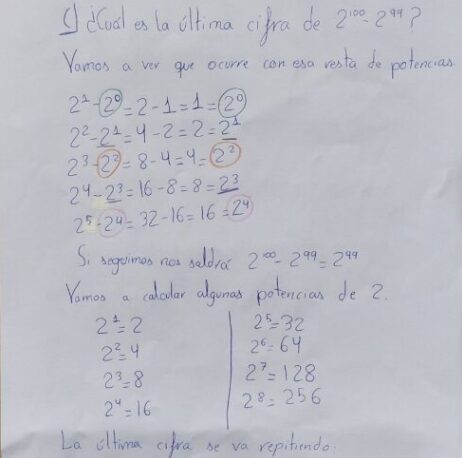 1) ¿Cuál es la última cifra de 2¹⁰⁰ - 2⁹⁹?
Vamos a ver que ocurre con esa resta de potencias
2¹ - 2⁰ = 2 - 1 = 1 = 2⁰
2² - 2¹ = 4 - 2 = 2 = 2¹
2³ - 2² = 8 - 4 = 4 = 2²
2⁴ - 2³ = 16 - 8 = 8 = 2³
2⁵ - 2⁴ = 32 - 16 = 16 = 2⁴
Si seguimos nos saldrá 2¹⁰⁰ - 2⁹⁹ = 2⁹⁹
Vamos a calcular algunas potencias de 2.
2¹ = 2
2² = 4
2³ = 8
2⁴ = 16
2⁵ = 32
2⁶ = 64
2⁷ = 128
2⁸ = 256
La última cifra se va repitiendo.